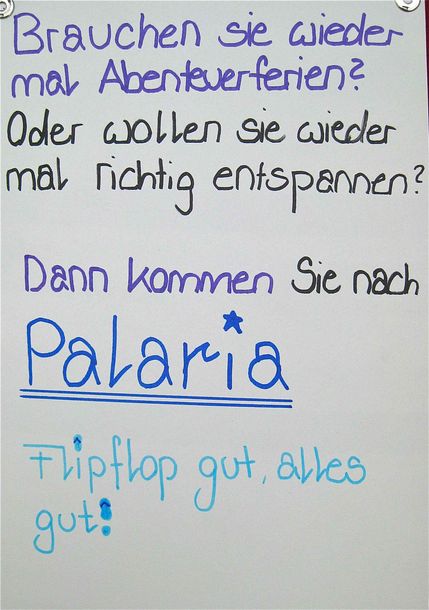 Brauchen sie wieder
mal Abenteuerferien?
Oder wollen sie wieder
mal richtig entspannen?
Dann kommen Sie nach
Palaria
Flipflop gut, alles
gut!